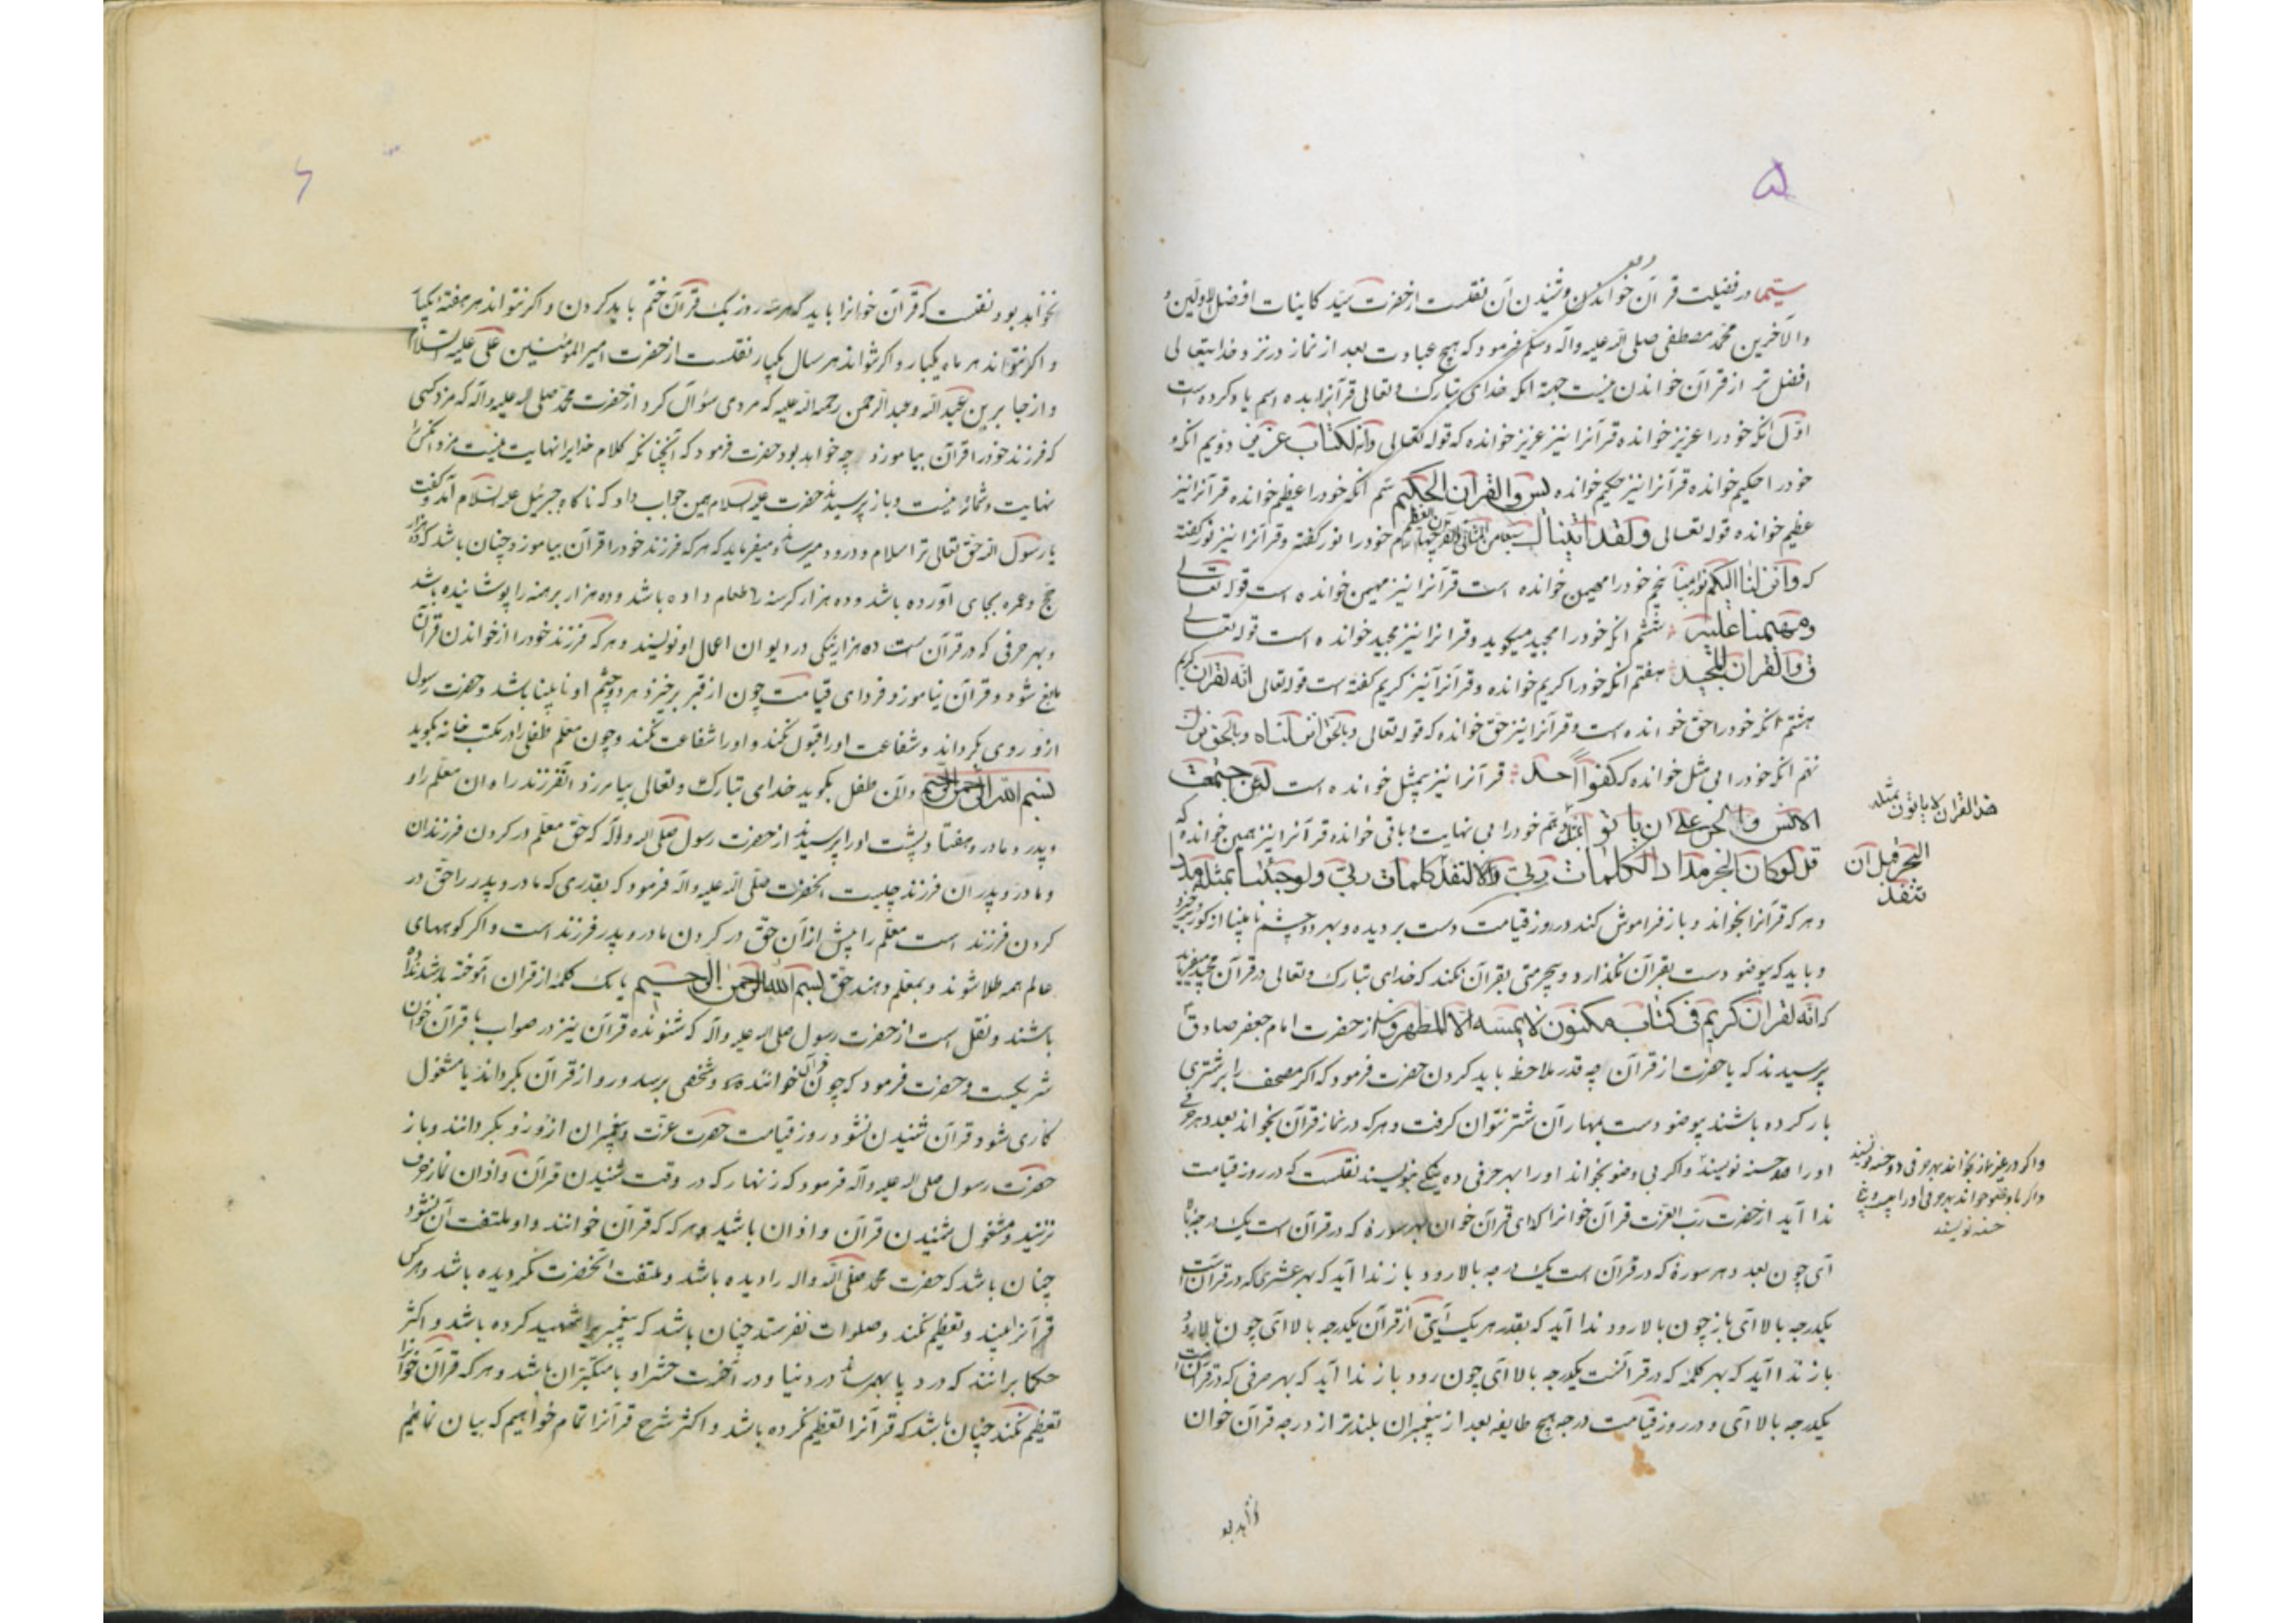 ۵
سیّما در فضیلت قرآن خواندن و شنیدن آن نقلست از حضرت سیّد کاینات افضل الاولین و
والآخرین محمّد مصطفی صلی الله علیه وآله وسلم فرمود که هیچ عبادت بعد از نماز در نزد خدایتعالی
افضل تر از قرآن خواندن نیست جهة آنکه خدای تبارک وتعالی قرآنرا بده اسم یاد کرده است
اوّل آنکه خود را عزیز خوانده قرآنرا نیز عزیز خوانده که قوله تعالی وانه لکتاب عزیز دویم آنکه
خود را حکیم خوانده قرآنرا نیز حکیم خوانده یس والقرآن الحکیم سیّم آنکه خود را عظیم خوانده قرآنرا نیز
عظیم خوانده قوله تعالی ولقد اتیناک سبعا من المثانی والقرآن العظیم چهارم خود را نور گفته وقرآنرا نیز نور گفته
که وانزلنا الیکم نورا مبینا پنجم خود را مهیمن خوانده است قرآنرا نیز مهیمن خوانده است قوله تعالی
ومهیمنا علیه ششم آنکه خود را مجید میگوید وقرآنرا نیز مجید خوانده است قوله تعالی
ق والقرآن المجید هفتم آنکه خود را کریم خوانده وقرآنرا نیز کریم گفته است قوله تعالی انّه لقرآن کریم
هشتم آنکه خود را حقّ خوانده است وقرآنرا نیز حقّ خوانده که قوله تعالی وبالحق انزلناه وبالحق نزل
نهم آنکه خود را بی مثل خوانده که کفوا احد قرآنرا نیز بیمثل خوانده است لئن اجتمعت
الانس والجن علی ان یاتوا بمثل دهم خود را بی نهایت و باقی خوانده قرآنرا نیز همین خوانده که
هذا القرآن لا یاتون بمثله
قل لو کان البحر مدادا لکلمات ربی لنفد کلمات ربی ولو جئنا بمثله مددا
البحر قبل ان
تنفد
و هر که قرآنرا بخواند و باز فراموش کند در روز قیامت دست بریده و بهر دو چشم نابینا از گور برخیزد
و باید که بیوضو دست بقرآن نگذارد و بیحرمتی بقرآن نکند که خدای تبارک وتعالی در قرآن مجید میفرماید
که انّه لقرآن کریم فی کتاب مکنون لا یمسّه الا المطهرون از حضرت امام جعفر صادق
پرسیدند که یا حضرت از قرآن چه قدر ملاحظه باید کردن حضرت فرمود که اگر مصحف را بر شتری
بار کرده باشند بیوضو دست بمهار آن شتر نتوان گرفت و هر که در نماز قرآن بخواند بعدد هر حرفی
او را صد حسنه نویسند و اگر بی وضو بخواند او را بهر حرفی ده نیکی بنویسند نقلست که در روز قیامت
و اگر در غیر نماز بخواند بهر حرفی دو حسنه نویسند
و اگر با وضو خواند بهر حرفی او را بیست و پنج
حسنه نویسند
ندا آید از حضرت ربّ العزت قرآن خوانرا که ای قرآن خوان بهر سوره که در قرآن است یک درجه بالا
آی چون بعدد هر سورة که در قرآن است یک درجه بالا رود باز ندا آید که بهر عشری که در قرآن است
یکدرجه بالا آی باز چون بالا رود ندا آید که بقدر هر یک آیتی از قرآن یکدرجه بالا آی چون بالا رود
باز ندا آید که بهر کلمه که در قرآنست یکدرجه بالا آی چون رود باز ندا آید که بهر حرفی که در قرآن است
یکدرجه بالا آی و در روز قیامت درجه هیچ طایفه بعد از پیغمبران بلندتر از درجه قرآن خوان
نخواهد بود
۶
نخواهد بود نقلست که قرآن خوانرا باید که هر سه روز یک قرآن ختم باید کردن و اگر نتواند هر هفته یکبار
و اگر نتواند هر ماه یکبار و اگر نتواند هر سال یکبار نقلست از حضرت امیر المؤمنین علی علیه السلام
و از جابر بن عبد الله و عبد الرحمن رحمه الله علیه که مردی سؤال کرد از حضرت محمد صلی الله علیه وآله که مزد کسی
که فرزند خود را قرآن بیاموزد چه خواهد بود حضرت فرمود که آنچنانکه کلام خدایرا نهایت نیست مزد آنکس را
نهایت و شماره نیست و باز پرسید حضرت علیه السلام همین جواب داد که ناگاه جبرئیل علیه السلام آمد و گفت
یا رسول الله حق تعالی ترا سلام و درود میرساند و میفرماید که هر که فرزند خود را قرآن بیاموزد چنان باشد که ده هزار
حج و عمره بجای آورده باشد و ده هزار گرسنه را طعام داده باشد و ده هزار برهنه را پوشانیده باشد
و بهر حرفی که در قرآن است ده هزار نیکی در دیوان اعمال او نویسند و هر که فرزند خود را از خواندن قرآن
مانع شود و قرآن نیاموزد فردای قیامت چون از قبر برخیزد هر دو چشم او نابینا باشد و حضرت رسول
ازو روی بگرداند و شفاعت او را قبول نکند و او را شفاعت نکند و چون معلّم طفلی را در مکتب خانه بگوید
بسم الله الرحمن الرحیم و آن طفل بگوید خدای تبارک وتعالی بیامرزد آنفرزند را و آن معلّم را و
و پدر و مادر و هفتاد پشت او را پرسیدند از حضرت رسول صلی الله وآله که حقّ معلّم در گردن فرزندان
و مادر و پدر آن فرزند چیست آنحضرت صلی الله علیه وآله فرمود که بقدری که مادر و پدر را حقّ در
گردن فرزند است معلّم را بیش از آن حقّ در گردن مادر و پدر فرزند است و اگر کوههای
عالم همه طلا شوند و بمعلّم دهند حقّ بسم الله الرحمن الرحیم یا یک کلمه از قرآن آموخته باشد نداده
باشند و نقل است از حضرت رسول صلی الله علیه وآله که شنونده قرآن نیز در صواب با قرآن خوان
شریکست و حضرت فرمود که چون قرآن خوانند و شخصی برسد و رو از قرآن بگرداند یا مشغول
کاری شود و قرآن شنیدن نشود روز قیامت حضرت عزّت و پیغمبران ازو رو بگردانند و باز
حضرت رسول صلی الله علیه وآله فرمود که زنهار که در وقت شنیدن قرآن و اذان نماز حرف
نزنید و مشغول شنیدن قرآن و اذان باشید و هر که که قرآن خوانند و او ملتفت آن نشود
چنان باشد که حضرت محمد صلی الله وآله را دیده باشد و ملتفت آنحضرت نگردیده باشد و هر کس
قرآنرا بیند و تعظیم نکند و صلوات نفرستد چنان باشد که پیغمبریرا شهید کرده باشد و اکثر
حکما برانند که درد یا بهمرساند در دنیا و در آخرت حشر او با متکبّران باشد و هر که قرآن خوانرا
تعظیم نکند چنان باشد که قرآنرا تعظیم نکرده باشد و اکثر شرح قرآنرا تمام خواهیم که بیان نمائیم